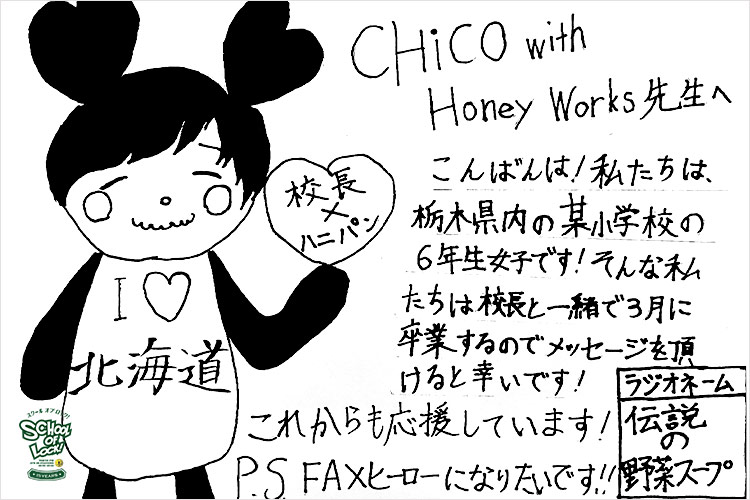 CHiCO with
Honey Works先生へ
こんばんは!私たちは、
栃木県内の某小学校の
6年生女子です!そんな私
たちは校長と一緒で3月に
卒業するのでメッセージを頂
けると幸いです!
これからも応援しています!
P.S. FAXヒーローになりたいです!!
校長
×
ハニパン
I♡
北海道
ラジオネーム
伝説
の
野菜スープ
スクールオブロック!
SCHOOL
OF
LOCK!